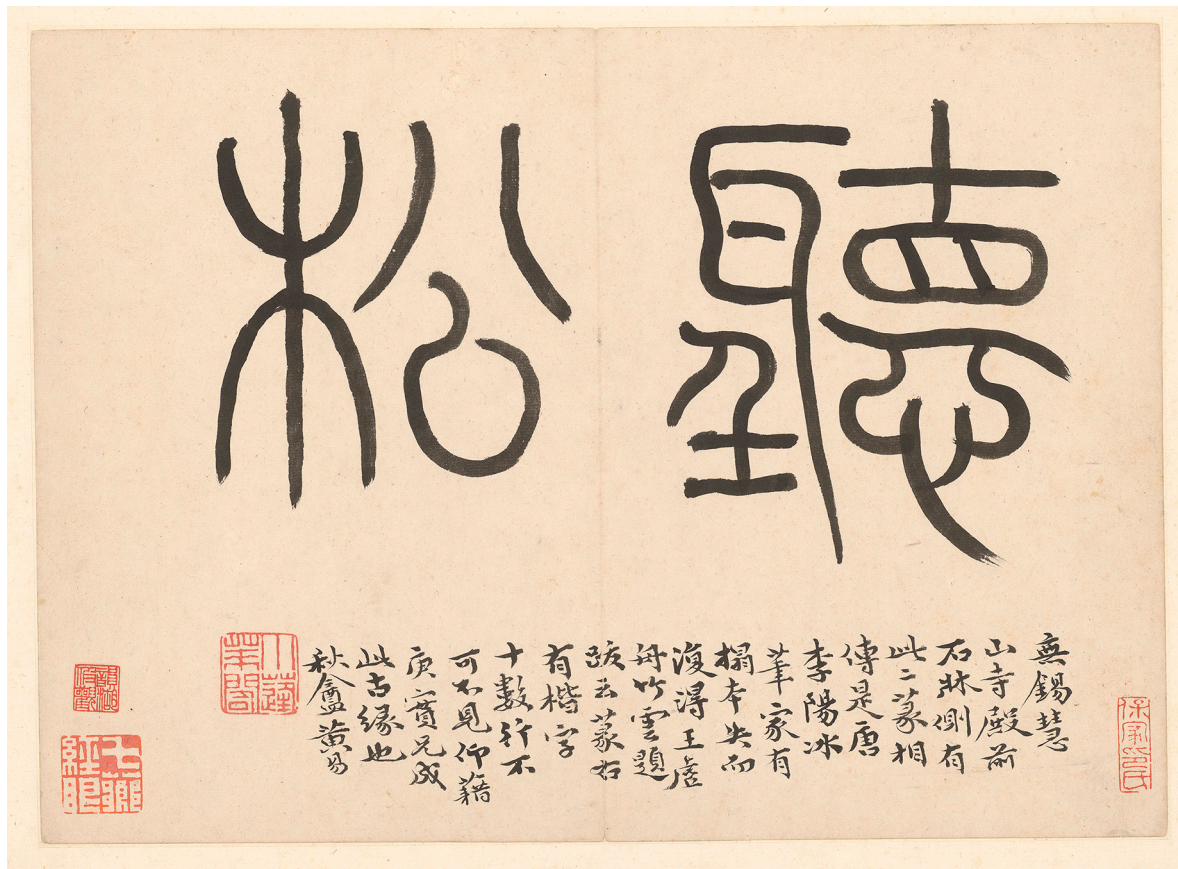 聽松
無錫慧
山寺殿前
石牀側有
此二篆相
傳是唐
李陽冰
筆家有
搨本失而
復得王虛
舟竹雲題
跋云篆右
有楷字
十數行不
可不見仰藉
庚實兄成
此古緣也
秋盦黃易
小蓬
萊閣